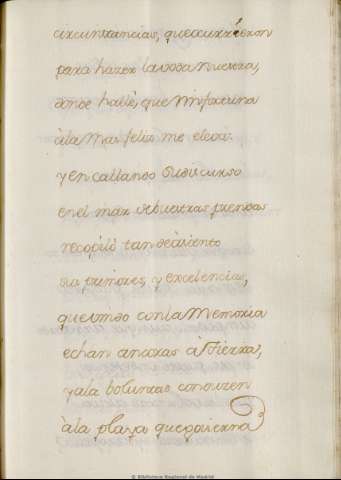 circunstancias, que ocurrieron
para hazer la voda nuestra,
donde hallè, que mi fortuna
à la mas feliz me eleva.
y en callando su discurso
en el mar de buestras prendas
recopilò tan de asiento
sus primores, y excelencias,
que dando con la Memoria
echan ancoras à Tierra,
y a la boluntad conducen
à la plaza que govierna
© Biblioteca Regional de Madrid